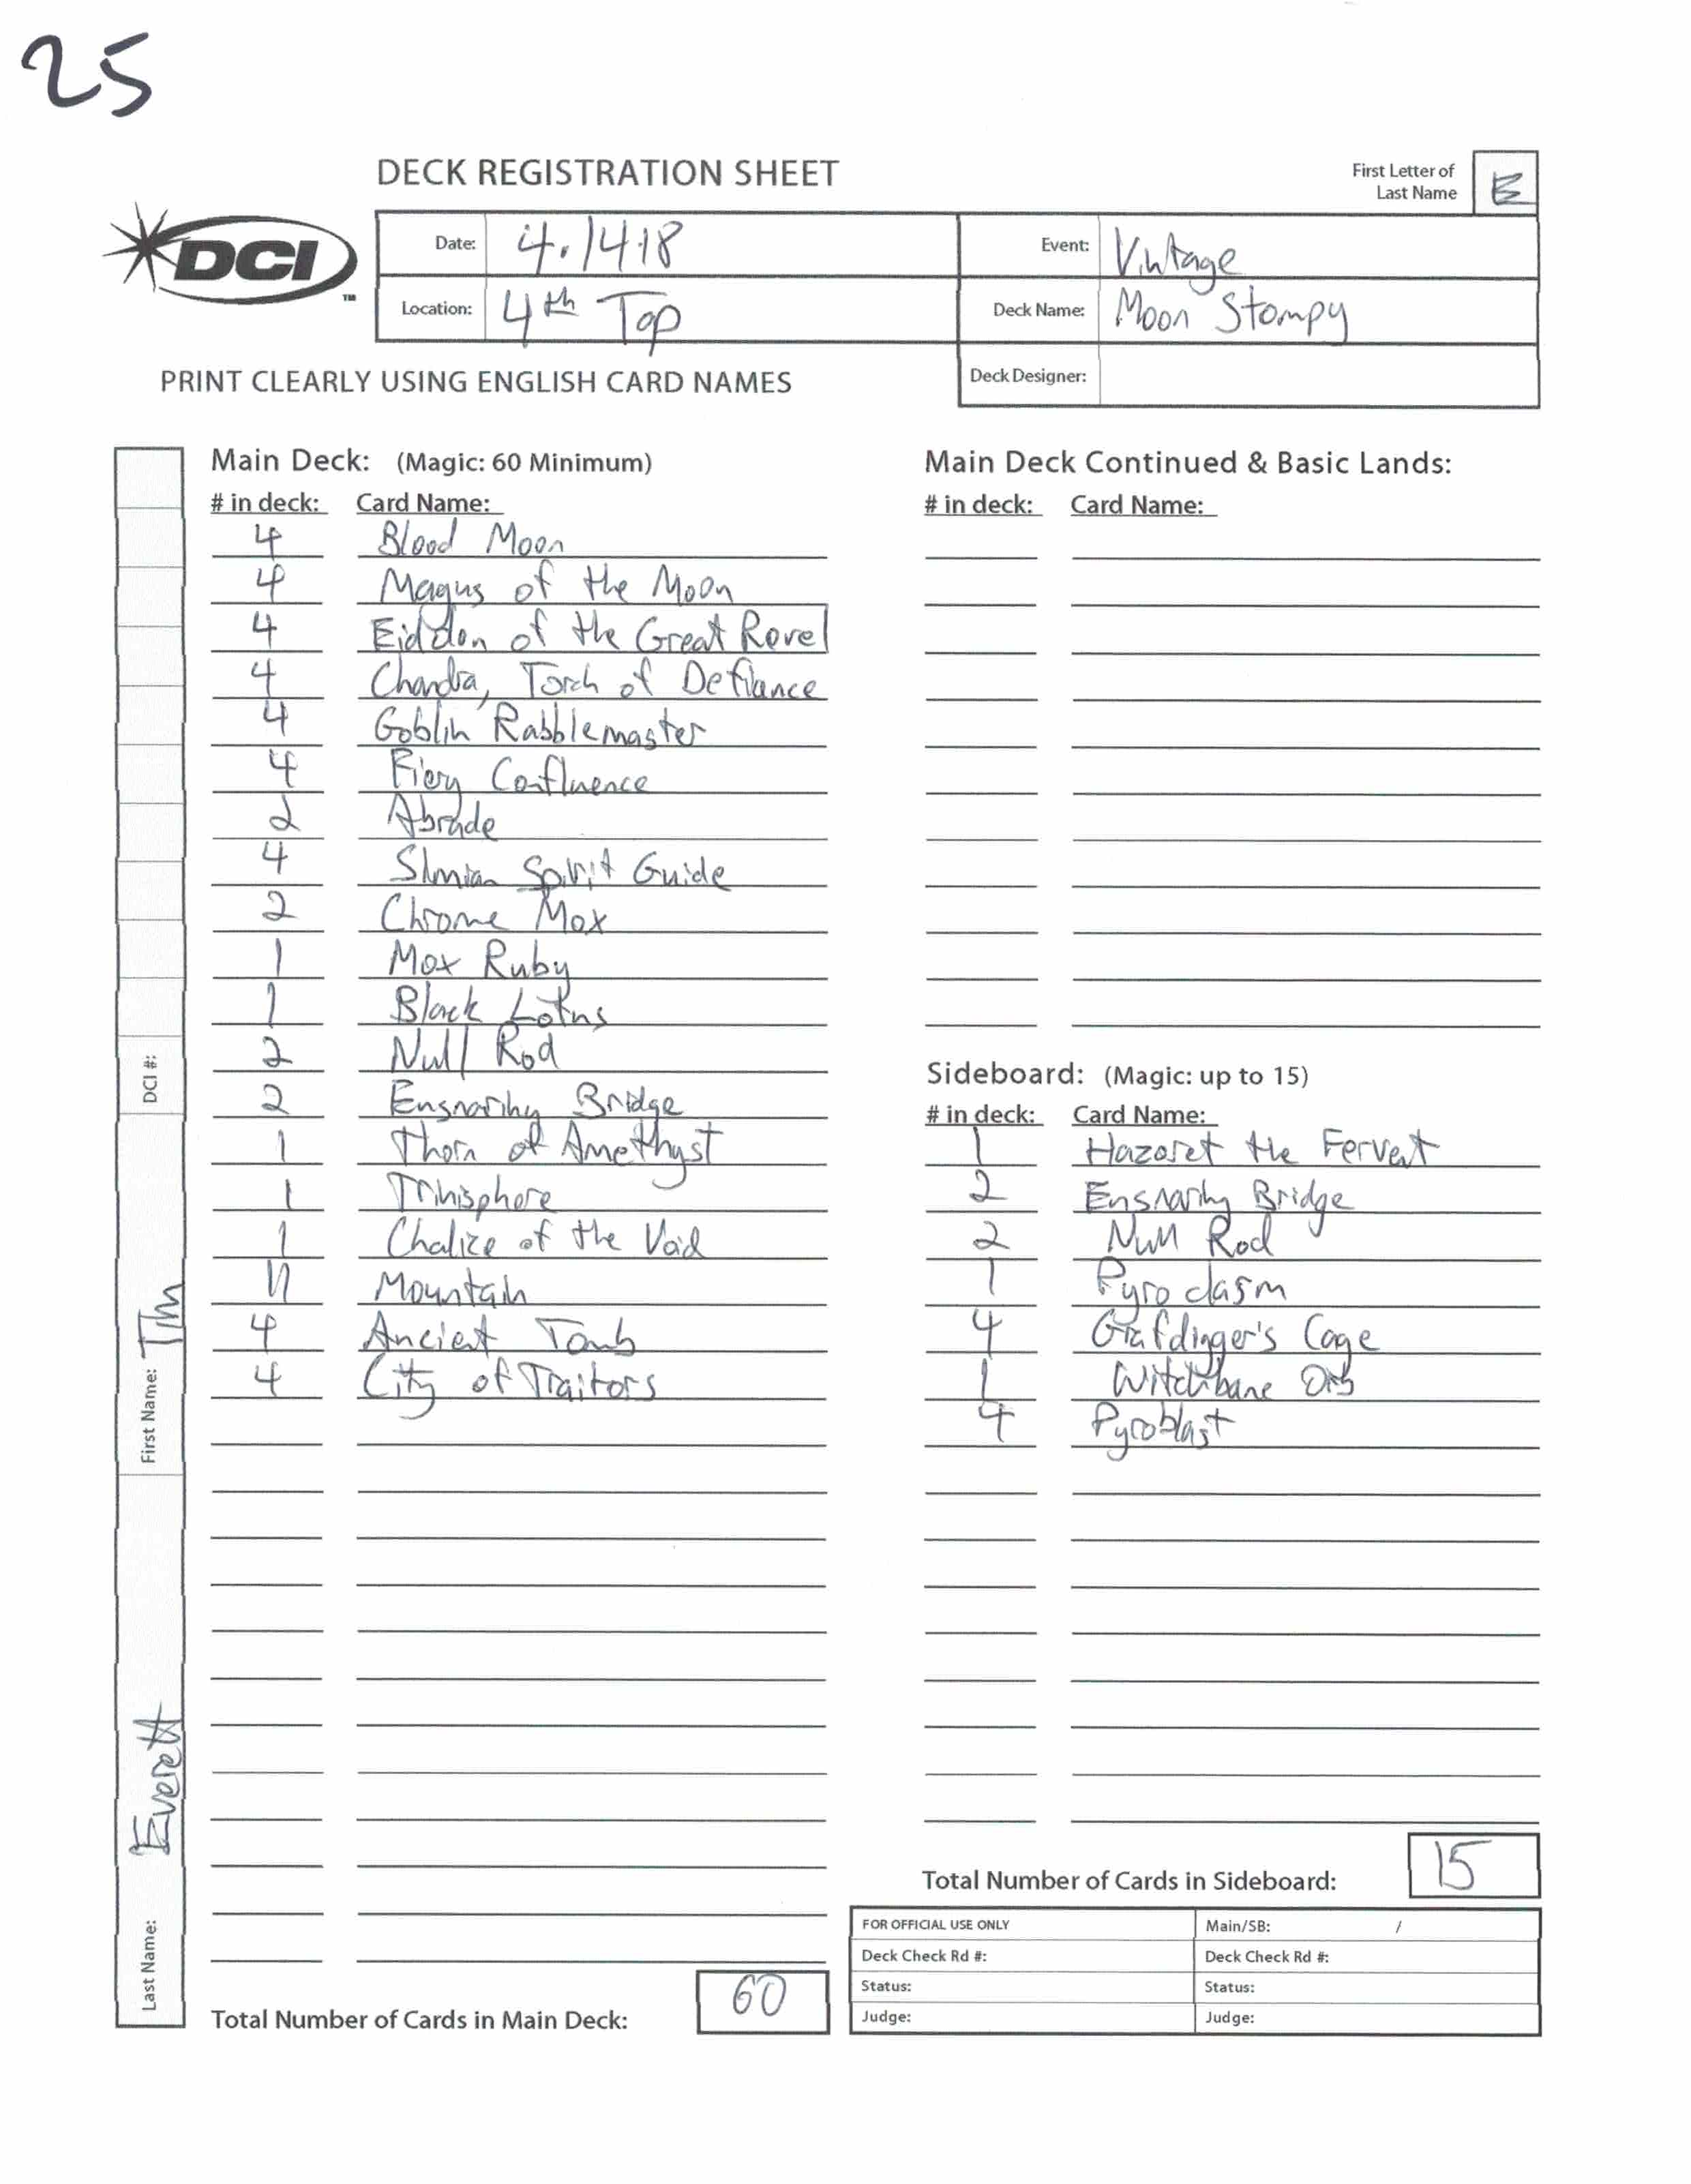 25
DECK REGISTRATION SHEET
First Letter of Last Name E
DCI
TM
Date: 4.14.18
Event: Vintage
Location: 4th Tap
Deck Name: Moon Stompy
Deck Designer:
PRINT CLEARLY USING ENGLISH CARD NAMES
Main Deck: (Magic: 60 Minimum)
# in deck: Card Name:
4 Blood Moon
4 Magus of the Moon
4 Eidolon of the Great Revel
4 Chandra, Torch of Defiance
4 Goblin Rabblemaster
4 Fiery Confluence
2 Abrade
4 Simian Spirit Guide
2 Chrome Mox
1 Mox Ruby
1 Black Lotus
2 Null Rod
2 Ensnaring Bridge
1 Thorn of Amethyst
1 Trinisphere
1 Chalice of the Void
11 Mountain
4 Ancient Tomb
4 City of Traitors
Total Number of Cards in Main Deck: 60
Main Deck Continued & Basic Lands:
# in deck: Card Name:
Sideboard: (Magic: up to 15)
# in deck: Card Name:
1 Hazoret the Fervent
2 Ensnaring Bridge
2 Null Rod
1 Pyroclasm
4 Grafdigger's Cage
1 Witchbane Orb
4 Pyroblast
Total Number of Cards in Sideboard: 15
FOR OFFICIAL USE ONLY
Main/SB: /
Deck Check Rd #:
Deck Check Rd #:
Status:
Status:
Judge:
Judge:
DCI #:
First Name: Tim
Last Name: Everett